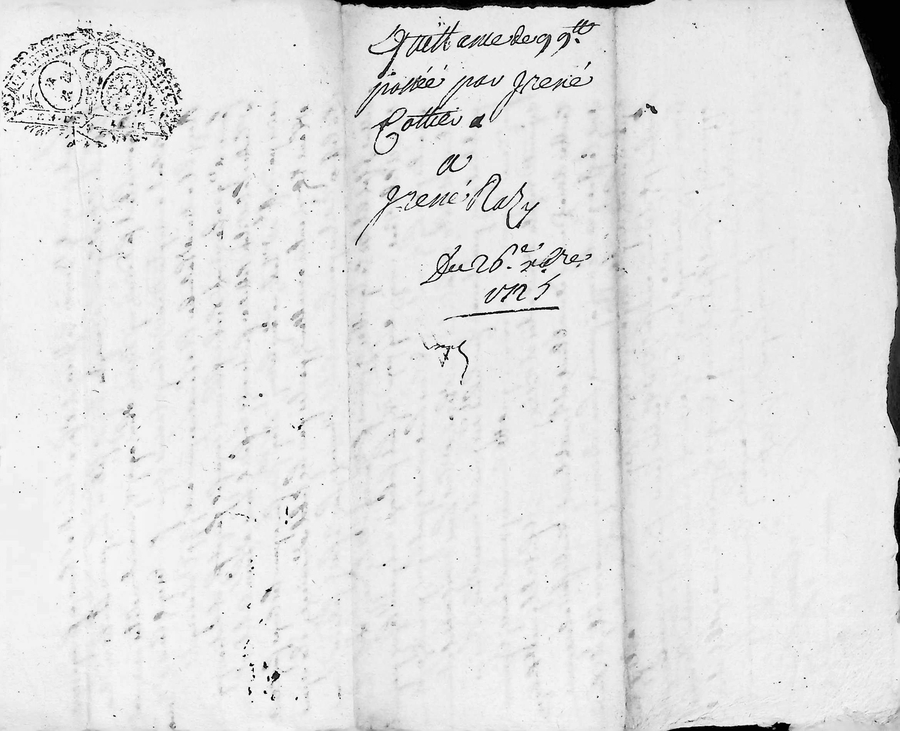 Quittance de 99tt
passée par Jrené
Cottier a
a
Jrené Razy
Du 26.e xbre
1725